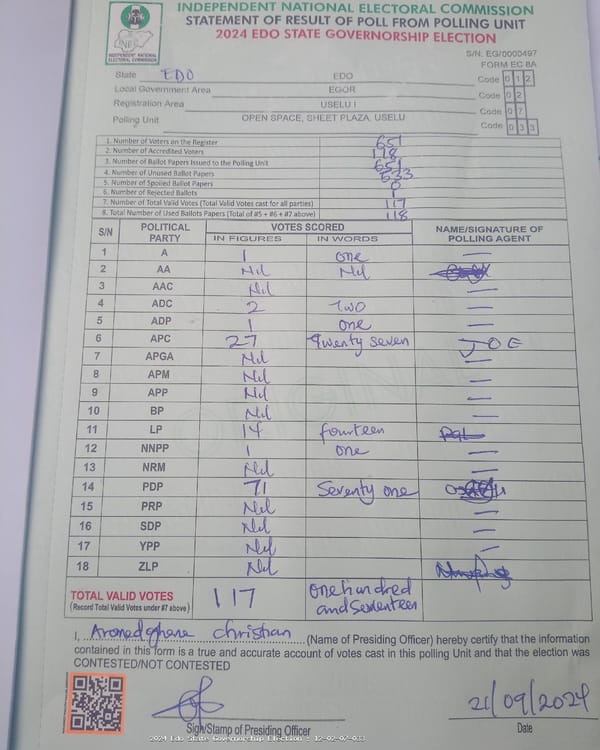 INDEPENDENT NATIONAL ELECTORAL COMMISSION
STATEMENT OF RESULT OF POLL FROM POLLING UNIT
2024 EDO STATE GOVERNORSHIP ELECTION
INDEPENDENT NATIONAL
ELECTORAL COMMISSION
S/N: EG/0000497
FORM EC 8A
State EDO EDO Code 0 1 2
Local Government Area EGOR Code 0 2
Registration Area USELU I Code 0 7
Polling Unit OPEN SPACE, SHEET PLAZA, USELU Code 0 3 3
1. Number of Voters on the Register 651
2. Number of Accredited Voters 118
3. Number of Ballot Papers Issued to the Polling Unit 651
4. Number of Unused Ballot Papers 533
5. Number of Spoiled Ballot Papers 0
6. Number of Rejected Ballots 1
7. Number of Total Valid Votes (Total Valid Votes cast for all parties) 117
8. Total Number of Used Ballots Papers (Total of #5 + #6 + #7 above) 118
S/N POLITICAL PARTY VOTES SCORED NAME/SIGNATURE OF POLLING AGENT
IN FIGURES IN WORDS
1 A 1 one —
2 AA Nil Nil
3 AAC Nil —
4 ADC 2 Two —
5 ADP 1 one —
6 APC 27 Twenty seven JOE
7 APGA Nil —
8 APM Nil —
9 APP Nil —
10 BP Nil —
11 LP 14 fourteen
12 NNPP 1 one —
13 NRM Nil —
14 PDP 71 Seventy one
15 PRP Nil —
16 SDP Nil —
17 YPP Nil —
18 ZLP Nil
TOTAL VALID VOTES 117 one hundred and seventeen
(Record Total Valid Votes under #7 above)
I, Aromedghene Christian (Name of Presiding Officer) hereby certify that the information
contained in this form is a true and accurate account of votes cast in this polling Unit and that the election was
CONTESTED/NOT CONTESTED
21/09/2024
Sign/Stamp of Presiding Officer Date
2024 Edo State Governorship Election : 12-02-07-033